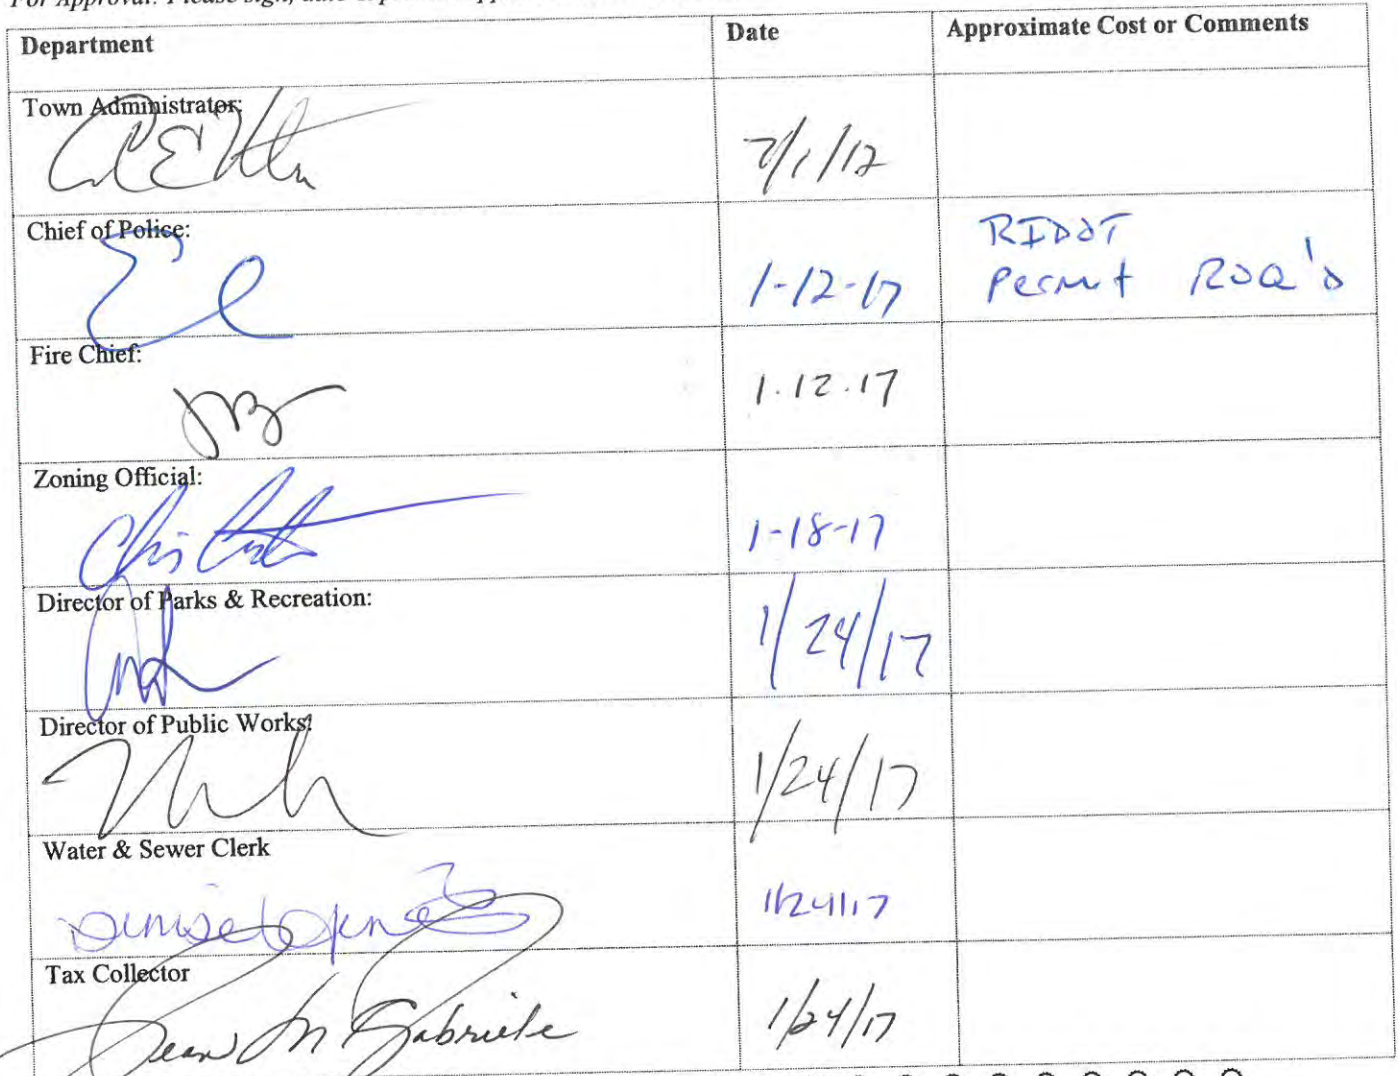 For Approval: Please sign, date
Department Date Approximate Cost or Comments
Town Administrator:
Chief of Police: 1-12-17 RIDOT
Permit REQ'D
Fire Chief: 1.12.17
Zoning Official: 1-18-17
Director of Parks & Recreation: 1/24/17
Director of Public Works: 1/24/17
Water & Sewer Clerk
Denise 1/24/17
Tax Collector
Jean M Gabriele 1/24/17